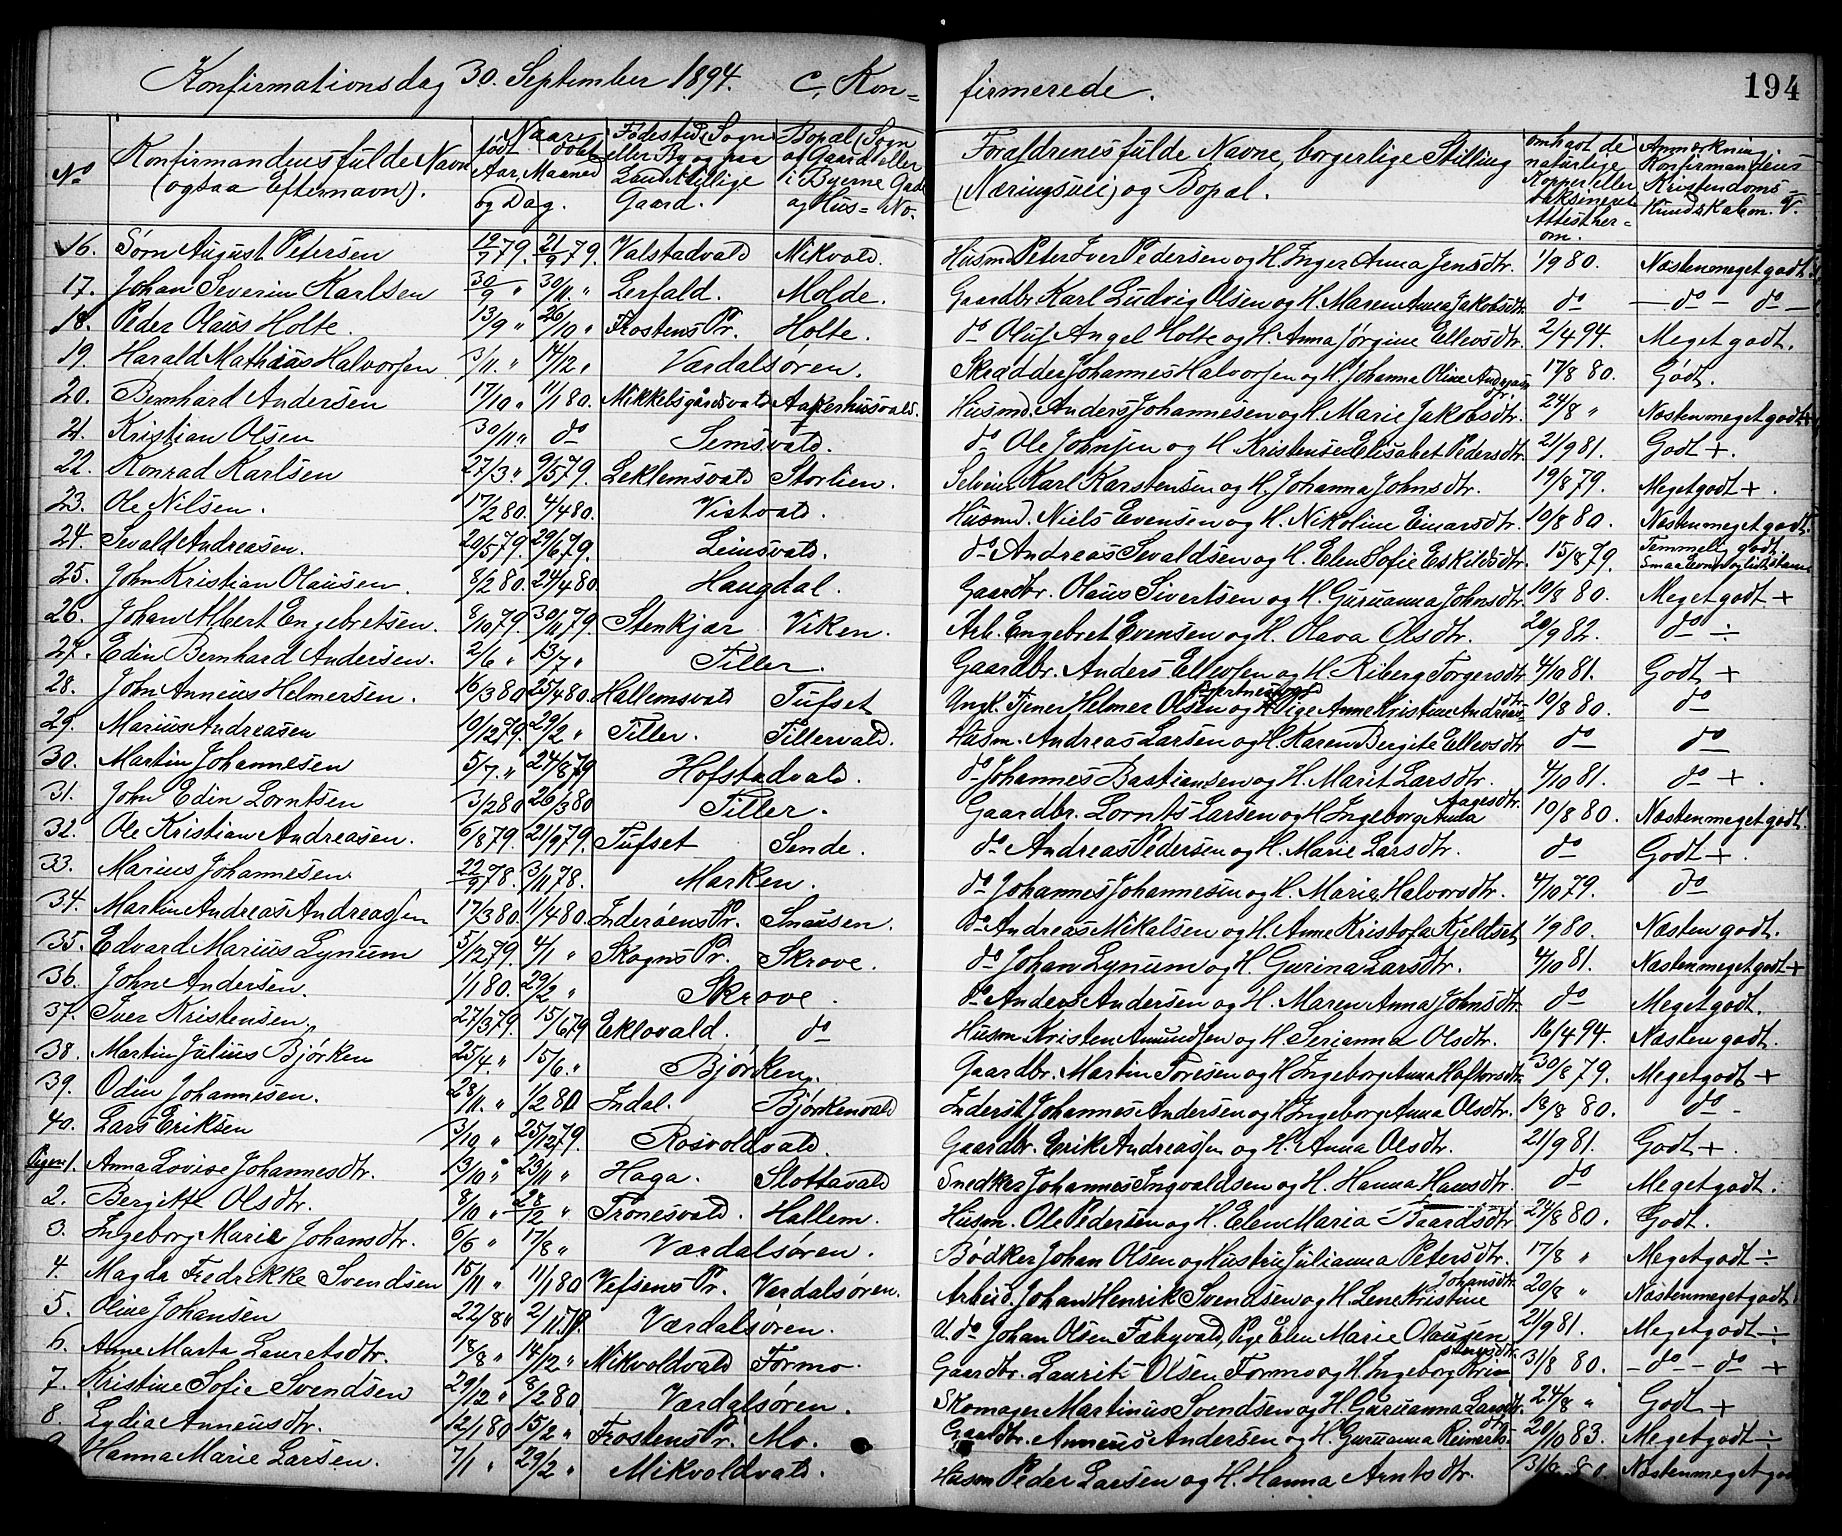 Konfirmationsdag 30. September 1894. C, Kon= firmerede. 194
No Konfirmandens fulde Navn (ogsaa Efternavn). Naar født døbt Aar Maaned og Dag. Fødested Sogn eller By og paa Landet tillige Gaard. Bopæl (Sogn og Gaard eller i Byerne Gade og Hus= No. Forældrenes fulde Navne, borgerlige Stilling (Næringsvei) og Bopæl. omhavt de naturlige Kopper eller vaksineret Attest her= om. Anmerkning. Konfirmandens Kristendoms= Kundskaber.
16. Sørn August Petersen 19/7 79. 21/9 79. Valstadvald Mikvald. Husmd Peter Iver Pedersen og H. Inger Anna Jensdtr. 1/9 80. Næsten meget godt.
17. Johan Severin Karlsen 30/9 " 30/11. " Lerfald. Molde. Gaardbr. Karl Ludvig Olsen og H. Maren Anna Jakobsdtr. do — do — do —
18. Peder Olaus Holte. 13/9 " 26/10 " Frostens Pr. Holte. do Oluf Angel Holte og H. Anna Jørgine Ellevsdtr. 2/4 94. Meget godt.
19. Harald Mathias Halvorsen 3/11. " 14/12 " Værdalsøren. Skrædder Johannes Halvorsen og H. Johanna Oline 17/8 80. Godt.
20. Bernhard Andersen 17/10 " 11/1 80. Mikkelsgårdsvald Aakerhusvald. Husmd. Anders Johannesen og H. Marie Jakobsdtr. 24/8 " Næsten meget godt +
21. Kristian Olsen 30/11 " do Semsvald. do Ole Johnsen og H. Kristense Elisabet Pedersdtr. 21/9 81. Godt +.
22. Konrad Karlsen 27/3 " 9/5 79. Leklemsvald Storlien. Selvei Karl Karstensen og H. Johanna Johnsdtr. 19/8 79. Meget godt +.
23. Ole Nilsen. 17/2 80. 4/4 80. Vistvald. Husmd. Niels Evensen og H. Nikoline Einarsdtr. 10/8 80. Næsten meget godt.
24. Sevald Andreasen. 20/5 79. 29/6 79. Leinsvald. do Andreas Sevaldsen og H. Elen Sofie Eskildsdtr. 15/8 79. Temmelig godt Smaa Evner
25. John Kristian Olausen 8/2 80. 24/4 80 Haugdal. Gaardbr. Olaus Sivertsen og H. Guruanna Johnsdtr. 10/8 80. Meget godt +
26. Johan Albert Engebretsen. 8/10 79. 30/11 79. Stenkjær Viken. Arb. Engebret Evensen og H. Olava Olsdtr. 20/9 82. do ÷
27. Edin Bernhard Andersen. 2/6 " 13/7 " Tiller. Gaardbr. Anders Ellevsen og H. Riberg Torgersdtr. 4/10 81. Godt +
28. John Anneus Helmersen. 16/3 80 25/4 80. Hallemsvald Tufset Ungk. Tjener Helmer Olsen og Pige Anne Kristine Andreasdtr. 10/8 80. do
29. Marius Andreasen 10/12 79. 29/2 " Tiller. Tillervald. Husm. Andreas Larsen og H. Karen Bergite Ellevsdtr do do
30. Martin Johannesen 5/7. " 24/8 79 Hofstadvald. do Johannes Bastiansen og H. Marit Larsdtr. 4/10 81. do +.
31. John Edin Lorntsen 3/2 80 26/3 80 Tiller. Gaardbr. Lornts Larsen og H Ingeborg Anna Aagesdtr. 10/8 80. Næsten meget godt.
32. Ole Kristian Andreasen. 6/8 79. 21/9 79. Tufset Sende. do Andreas Pedersen og H. Marie Larsdtr. do Godt +.
33. Marius Johannesen 22/9 78. 3/11 78. Marken. do Johannes Johannesen og H. Marie Halvorsdtr. 4/10 79. do
34. Martin Andreas Andreassen 17/3 80. 11/4 80. Inderøens Pr. Snausen. do Andreas Mikalsen og H. Anne Kristofa Kjeldset 1/9 80. Næsten godt.
35. Edvard Marius Lynum 5/12 79. 4/1 " Skogns Pr. Skrove. do Johan Lynum og H. Gurina Larsdtr. 4/10 81. Næsten meget godt +
36. John Andersen. 1/1 80. 29/2 " Skrove. do Anders Andersen og H. Maren Anna Johnsdtr. do Meget godt.
37. Iver Kristensen. 27/3 79. 15/6 79 Eklovald. do Husm Kristen Amundsen og H. Serianna Olsdtr. 16/4 94. Næsten godt.
38. Martin Julius Bjørken 25/4 " 15/6. " Bjørken. Gaardbr. Martin Toresen og H Ingeborg Anna Haftorsdtr. 30/8 79. Meget godt +
39. Odin Johannesen. 28/11. " 1/2 80 Indal. Bjørkenvald Inderst Johannes Andersen og H Ingeborg Anna Olsdtr. 18/8 80. do -
40. Lars Eriksen 3/10 " 25/12 79. Rosvoldvald. Gaardbr. Erik Andreassen og H. Anna Olsdtr. 21/9 81. Godt +.
Piger 1. Anna Lovise Johannesdtr. 3/10 " 23/11 " Haga. Slottavald Snedker Johannes Ingvaldsen og H. Hanna Hansdtr. do Meget godt.
2. Bergitte Olsdtr. 8/10 " 28/12 " Tronesvald. Hallem. Husm. Ole Pedersen og H. Elen Maria Baardsdtr. 24/8 80. Godt.
3. Ingeborg Marie Johansdtr. 6/6 " 17/8 " Værdalsøren. Bødker Johan Olsen og Hustru Julianna Petersdtr. 17/8 " Meget godt ÷
4. Magda Fredrikke Svendsen 15/11 " 11/1 80 Vefsens Pr. Værdalsøren. Arbeid. Johan Henrik Svendsen og H. Lene Kristine Johansdtr. 20/8 " Næsten meget godt
5. Oline Johansen 22/8 " 2/11 79. Værdalsøren. U. do Johan Olsen Fæbyvald, Pige Elen Marie Olausen 21/9 81. Meget godt ÷
6. Anne Marta Lauretsdtr. 18/8 " 14/12 " Mikvoldvald Formo. Gaardbr. Laurits Olsen Formo og H. Ingeborg 31/8 80. — do — do +
7. Kristine Sofie Svendsen 29/12 " 8/2 80. Værdalsøren. Skomager Martinus Svendsen og H. Guruanna Larsdtr. 24/8 " Godt +
8. Lydia Anneusdtr. 12/1 80 15/2 " Frostens Pr. Mo. Gaardbr. Anneus Andersen og H. Guruanna Reinerts- 26/10 83. Meget godt ÷
9. Hanna Marie Larsen. 7/1 " 29/2 " Mikvoldvald. Husm Peder Larsen og H. Hanna Arntsdtr. 31/8 80. Næsten meget godt